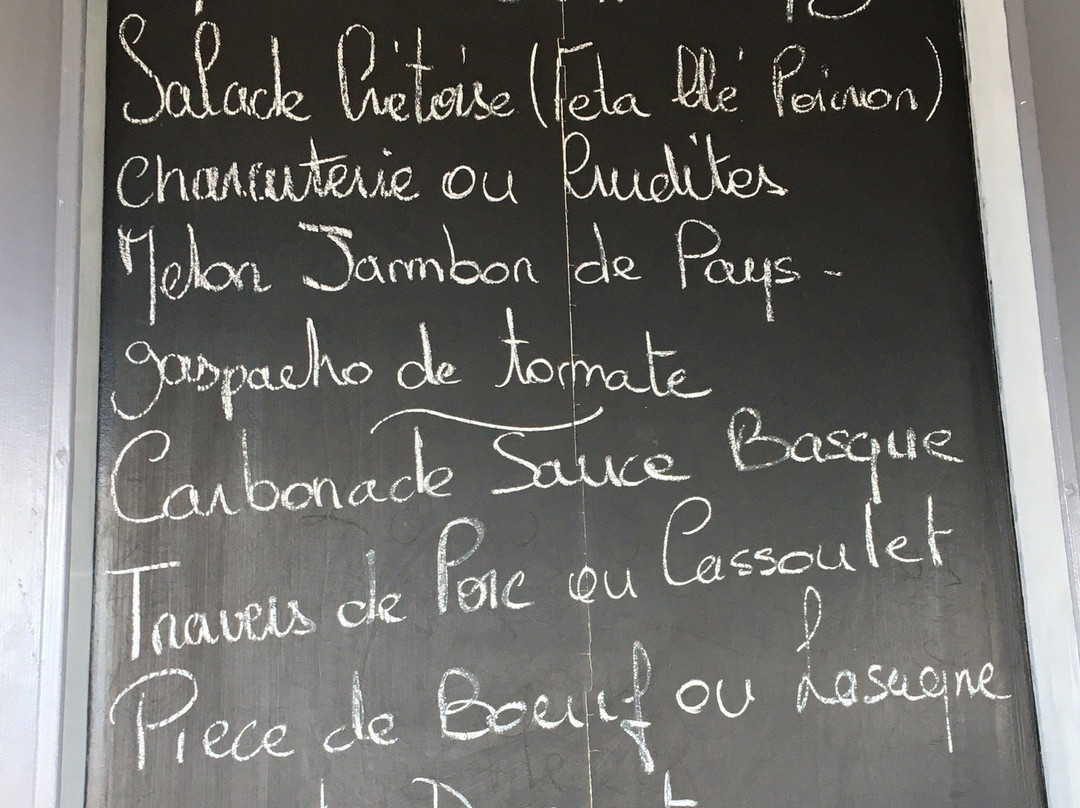 Salade Crétoise (Feta blé Poivron)
Charcuterie ou Crudités
Melon Jambon de Pays -
gaspacho de tomate
Carbonade Sauce Basque
Travers de Porc ou Cassoulet
Pièce de Boeuf ou Lasagne